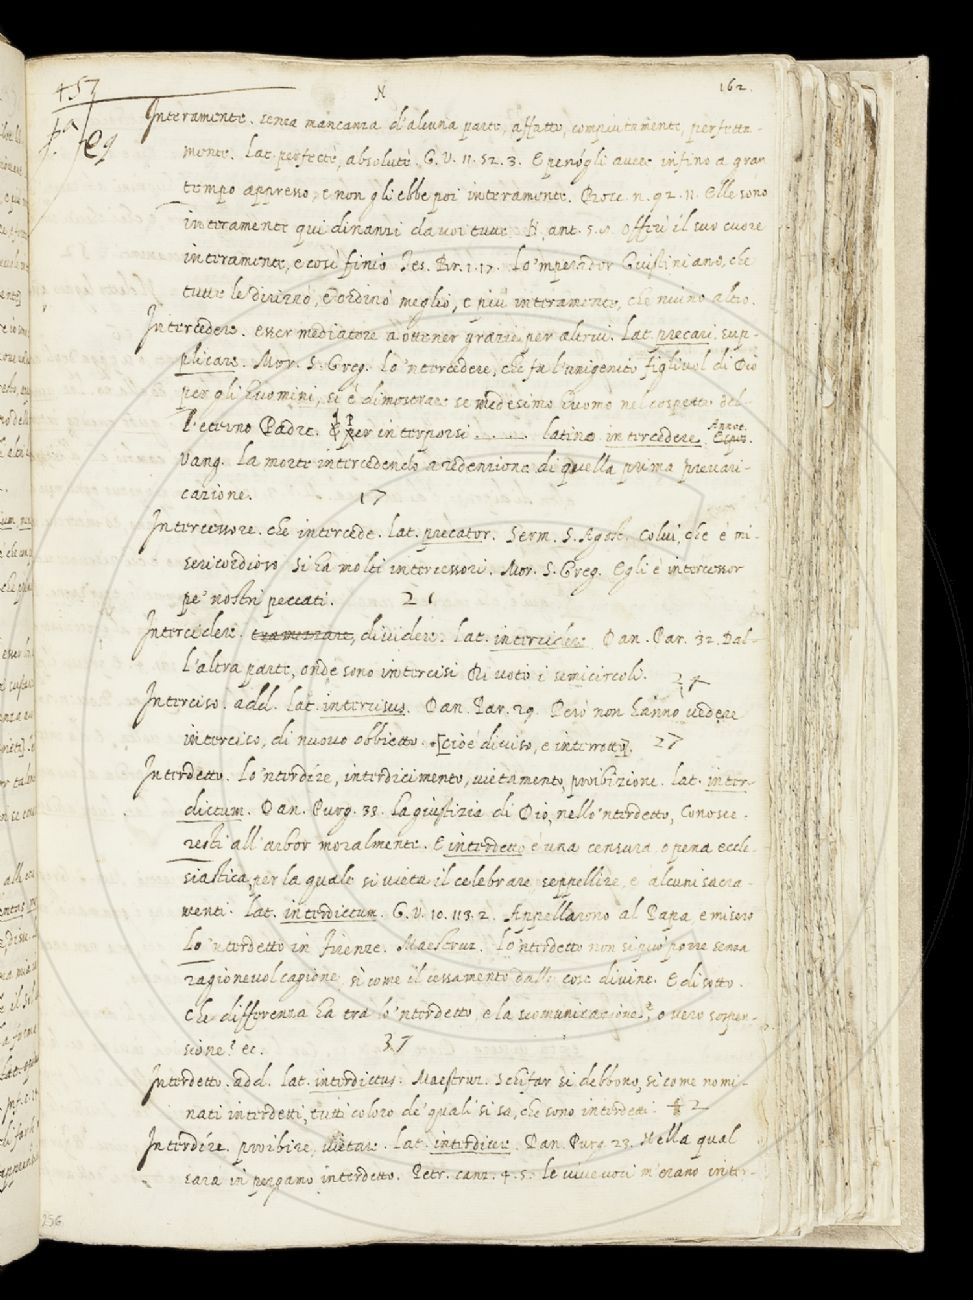 457 N 162.
Interamente. senza mancanza d'alcuna parte, affatto, compiutamente, perfetta-
mente. Lat. perfectè, absolutè. G. V. 11. 52. 3. E penogli avere infino a gran
tempo appresso, e non gli ebbe poi interamente. Bocc. n. 92. 11. Elle sono
interamente qui dinanzi da voi tutte. N. ant. 5. Offerì il suo cuore
interamente, e così finio. Tes. Br. 1. 17. Lo 'mperador Giustiniano, che
tutte le divisò, e ordinò meglio, e più interamente, che niuno altro.
Intercedere. esser mediatore a ottener grazie per altrui. Lat. precari, sup-
plicare. Mor. S. Greg. Lo 'ntercedere, che fa l'unigenito figliuol di Dio
per gli huomini, si è dimostrare se medesimo huomo nel cospetto del-
l'eterno Padre. per interporsi ........ latino intercedere. Annot.
Vang. La morte intercedendo a redenzione di quella prima prevari-
cazione. 17
Intercessore. che intercede. Lat. precator. Serm. S. Agost. Colui, che è mi-
sericordioso si ha molti intercessori. Mor. S. Greg. Egli è intercessor
pe' nostri peccati. 21
Intercidere. tramezzare, dividere. Lat. intercidere. Dan. Par. 32. Dal-
l'altra parte, onde sono intercisi Di voto i semicircoli. 24
Interciso. add. Lat. intercisus. Dan. Par. 29. Però non hanno vedere
interciso, di nuovo obbietto. [cioè diviso, e interrotto]. 27
Interdetto. Lo 'nterdire, interdicimento, vietamento, proibizione. Lat. inter-
dictum. Dan. Purg. 33. La giustizia di Dio, nello 'nterdetto, Conosce-
resti all'arbor moralmente. E interdetto è una censura, o pena eccle-
siastica, per la quale si vieta il celebrare, seppellire, e alcuni sacra-
menti. Lat. interdictum. G. V. 10. 113. 2. Appellarono al Papa e misero
lo 'nterdetto in Firenze. Maestruz. Lo 'nterdetto non si può porre senza
ragionevol cagione, sì come il cessamento dalle cose divine. E di sotto.
Che differenza ha tra lo 'nterdetto, e la scomunicazione, o vero sospen-
sione? ec. 37
Interdetto. add. Lat. interdictus. Maestruz. Schifar si debbono, sì come nomi-
nati interdetti, tutti coloro de' quali si sa, che sono interdetti. 42
Interdire. proibire, vietare. Lat. interdicere. Dan. Purg. 23. Nella qual
sarà in pergamo interdetto. Petr. canz. 4. 5. Le vive voci m'erano inter-
256